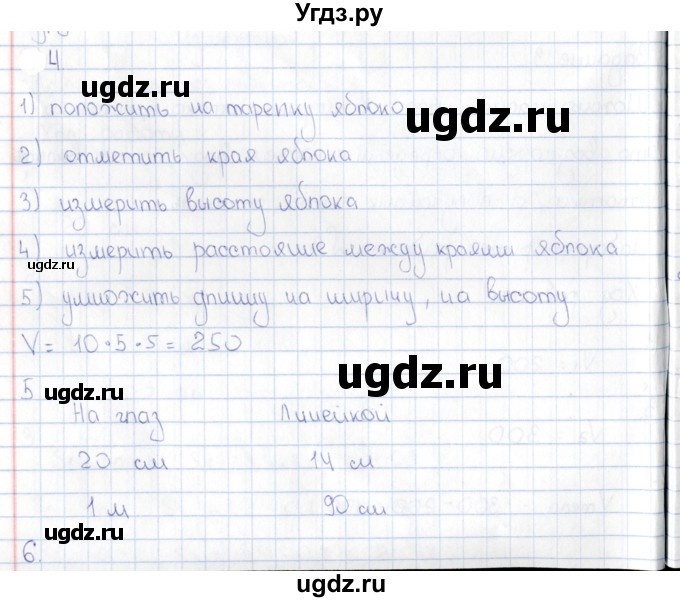 Угдз.ру
ugdz.ru
4.
1) положить на тарелку яблоко
ugdz.ru
2) отметить края яблока
3) измерить высоту яблока
4) измерить расстояние между краями яблока
ugdz.ru
5) умножить длину на ширину, на высоту
V = 10 · 5 · 5 = 250
ugdz.ru
5
ugdz.ru
На глаз Линейкой
20 см 14 см
1 м 90 см
ugdz.ru
6.
ugdz.ru